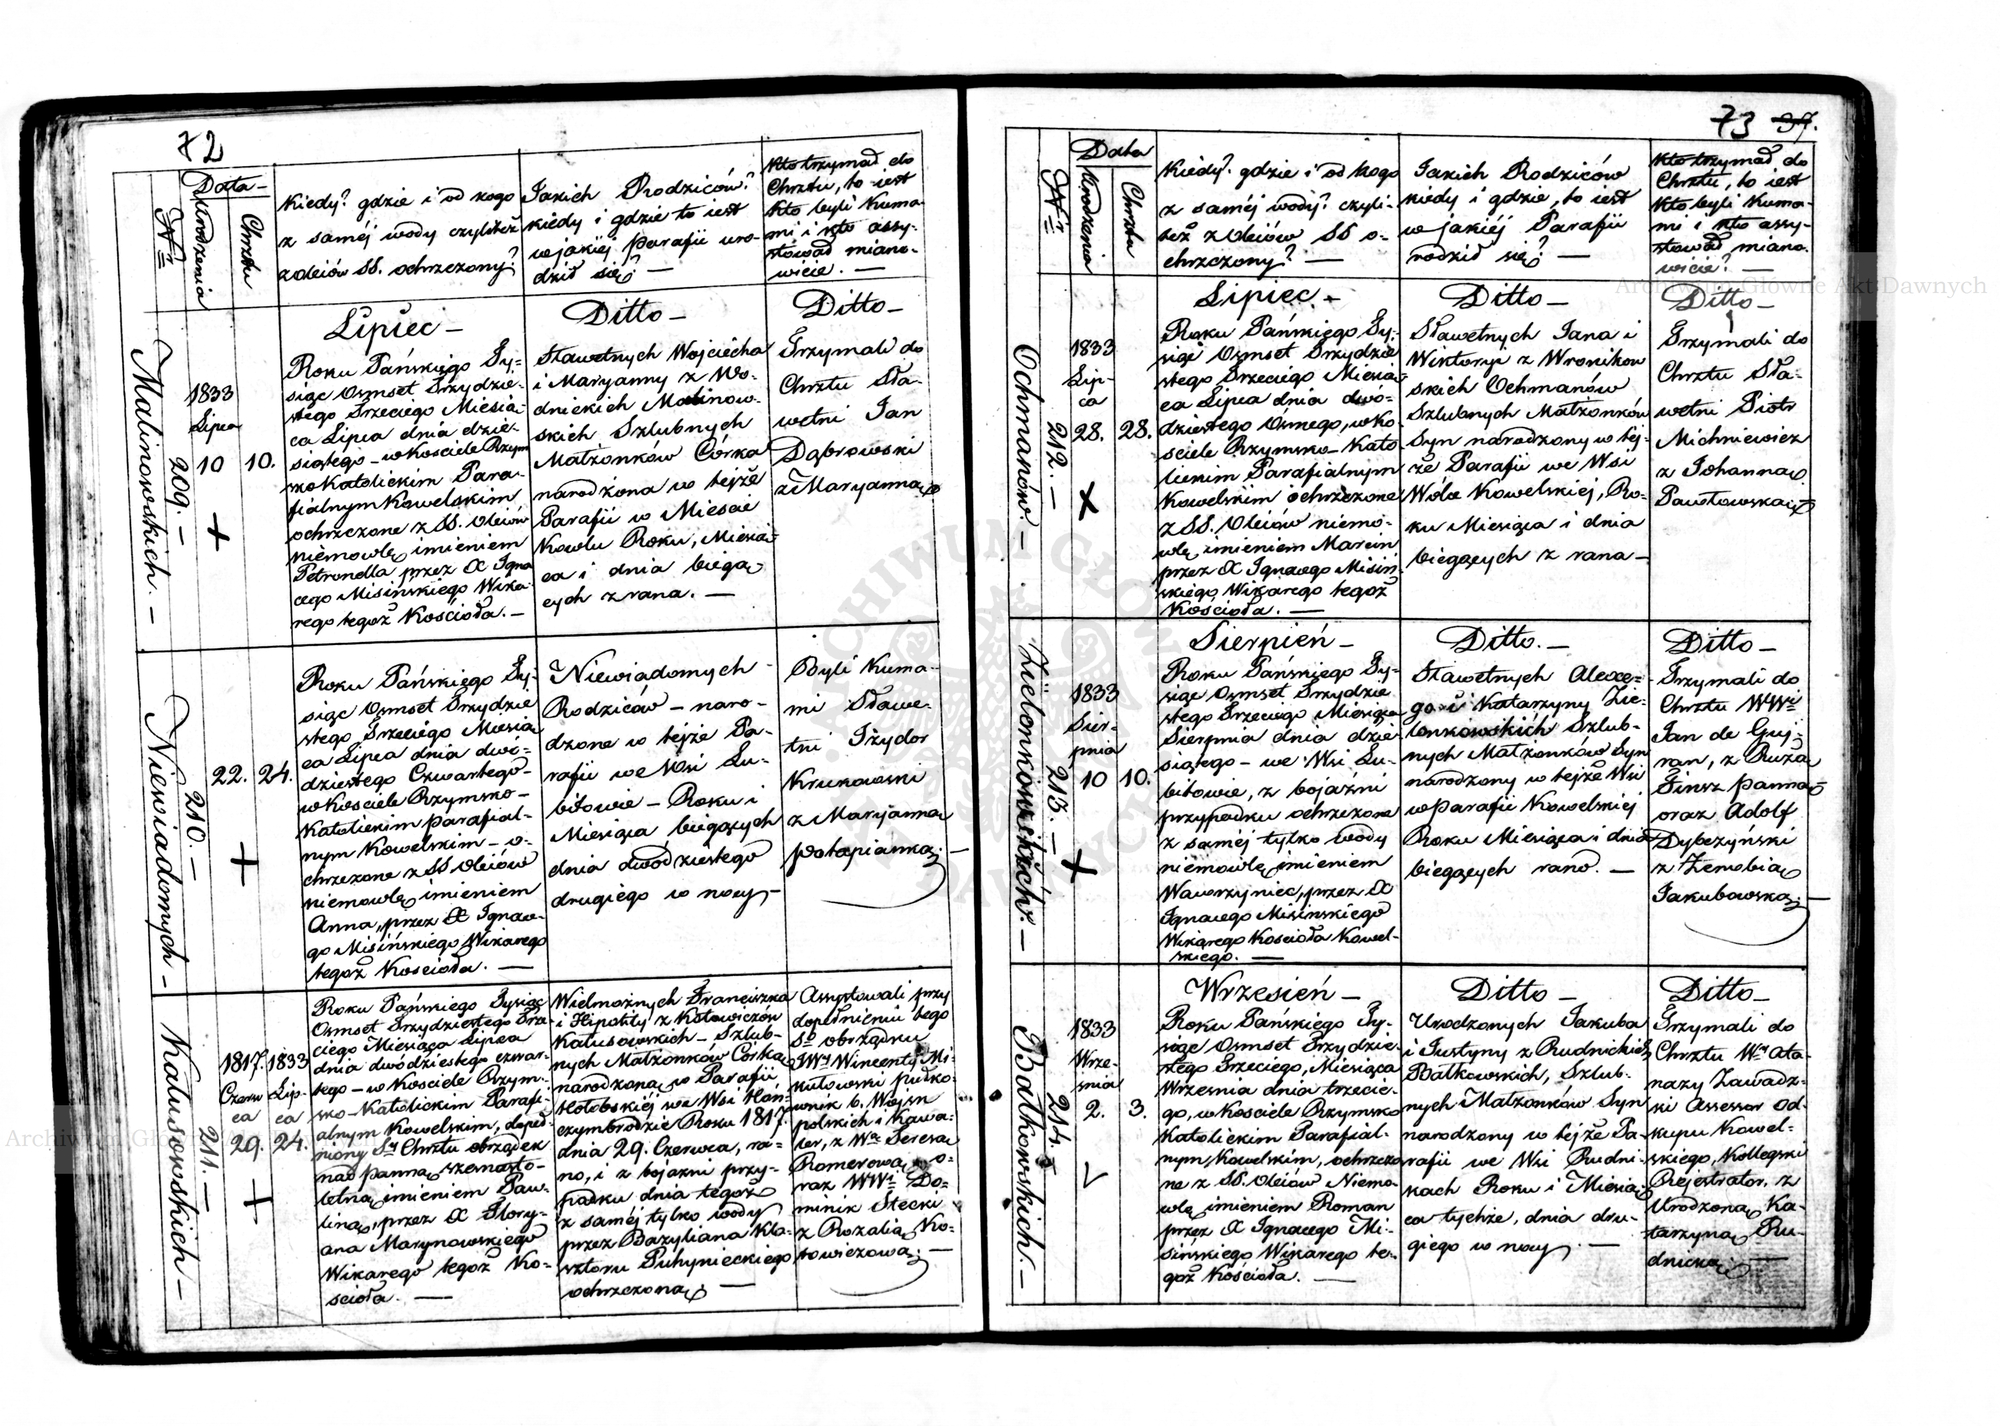 72
Data
Nr
Urodzenia
Chrztu
Kiedy? gdzie i od kogo
z saméj wody czyliteż
z oleiów SS. ochrzczony?
Jakich Rodziców?
kiedy i gdzie to iest
w jakiéj parafii uro-
dził się? —
Kto trzymał do
Chrztu, to iest
kto byli Kuma-
mi i kto assy-
stował miano-
wicie. —
Malinowskich. —
209. —
1833
Lipca
10
10.
Lipiec —
Roku Pańskiego Ty-
siąc Osmset Trzydzie-
stego Trzeciego Miesią-
ca Lipca dnia dzie-
siątego – w Kościele Rzym
sko Katolickim Para-
fialnym Kowelskim
ochrzczone z SS. Oleiów
niemowlę imieniem
Petronella przez X Igna
cego Misińskiego Wika-
rego tegoż Kościoła. —
Ditto —
Sławetnych Wojciecha
i Maryanny z Wo-
dnickich Malinow-
skich Szlubnych
Małżonków Córka
narodzona w tejże
Parafii w Mieście
Kowlu Roku, Miesią-
ca i dnia biegą-
cych z rana. —
Ditto —
Trzymali do
Chrztu Sła-
wetni Jan
Dąbrowski
z Maryanną
Niewiadomych —
210. —
22.
24.
Roku Pańskiego Ty-
siąc Osmset Trzydzie
stego Trzeciego Miesią
ca Lipca dnia dwu-
dziestego Czwartego –
w Kościele Rzymsko –
Katolickim parafial-
nym Kowelskim – o-
chrzczone z SS Oleiów
niemowlę imieniem
Anna, przez X Ignac-
go Misińskiego Wikarego
tegoż Kościoła. —
Niewiadomych
Rodziców – naro-
dzone w tejże Pa-
rafii we Wsi Lu-
bitowie – Roku i
Miesiąca biegących
dnia dwódziestego
drugiego w nocy —
Byli Kuma-
mi Sławe-
tni Jzydor
Krukowski
z Maryanną
Potapianką. —
Kałusowskich —
211. —
1817.
Czerw
ca
29.
1833
Lip-
ca
24.
Roku Pańskiego Tysiąc
Osmset Trzydziestego Trze
ciego Miesiąca Lipca
dnia dwódziestego czwar-
tego – w Kościele Rzym-
sko – Katolickim Parafi-
alnym Kowelskim, dopeł-
niony St. Chrztu obrządek
nad panną szesnasto-
letnią imieniem Paw-
liną, przez X Flory-
ana Marynowskiego
Wikarego tegoż Ko-
ścioła. —
Wielmożnych Franciszka
i Hipolity z Kotowiczów
Kałusowskich – Szlub-
nych Małżonków Córka
narodzona w Parafii
Hołobskiéj we Wsi Han-
czymbrodzie Roku 1817.
dnia 29. Czerwca, ra-
no, i z bojaźni przy-
padku dnia tegoż
z saméj tylko wody
przez Bazyliana Kla-
sztoru Puhynieckiego
ochrzczona —
Assystowali przy
dopełnieniu tego
St obrządku
JWny Wincenty Mi-
kułowski pułko-
wnik b. Wojsk
polskich i Kawa-
ler, z Wną Teresą
Romerową o-
raz WWni Do-
minik Stecki
z Rozalią Ko-
towiczową. —
73 37.
Data
Nr
Urodzenia
Chrztu
Kiedy? gdzie i od kogo
z saméj wody? czyli-
też z Oleiów SS o-
chrzczony? —
Jakich Rodziców
kiedy i gdzie, to iest
w jakiéj Parafii
rodził się? —
Kto trzymał do
Chrztu, to iest
kto byli Kuma-
mi i kto assy-
stował miano-
wicie? —
Ochmanów. —
212. —
1833
Lip-
ca
28.
28.
Lipiec. —
Roku Pańskiego Ty-
siąc Osmset Trzydzie
stego Trzeciego Miesią-
ca Lipca dnia dwó-
dziestego Ósmego, w Ko-
ściele Rzymsko – Kato
lickim Parafialnym
Kowelskim ochrzczone
z SS. Oleiów niemo-
wlę imieniem Marcin
przez X Ignacego Misiń-
skiego Wikarego tegoż
Kościoła. —
Ditto —
Sławetnych Jana i
Wiktoryi z Wronikow
skich Ochmanów
Szlubnych Małżonków
Syn narodzony w tej-
że Parafii we Wsi
Wólce Kowelskiej, Ro-
ku Miesiąca i dnia
biegących z rana —
Ditto —
Trzymali do
Chrztu Sła-
wetni Piotr
Michniewicz
z Johanną
Pawłowską
Zielonkowskich. —
213. —
1833
Sier-
pnia
10
10.
Sierpień —
Roku Pańskiego Ty-
siąc Osmset Trzydzie
stego Trzeciego Miesiąca
Sierpnia dnia dzie
siątego – we Wsi Lu-
bitowie, z bojaźni
przypadku ochrzczone
z saméj tylko wody
niemowlę imieniem
Wawrzyniec, przez X
Ignacego Misińskiego
Wikarego Kościoła Kowel-
skiego. —
Ditto. —
Sławetnych Alexe-
go i Katarzyny Zie-
lonkowskich Szlub-
nych Małżonków Syn
narodzony w tejże Wsi
w Parafii Kowelskiej
Roku Miesiąca i dnia
biegących rano. —
Ditto —
Trzymali do
Chrztu WWni
Jan de Guj-
ran, z Ruzą
Finsz panną
oraz Adolf
Dybczyński
z Zenobią
Jakubowską. —
Bałkowskich. —
214.
1833
Wrze-
śnia
2.
3.
Wrzesień —
Roku Pańskiego Ty-
siąc Osmset Trzydzie-
stego Trzeciego, Miesiąca
Września dnia trzecie-
go, w Kościele Rzymsko
Katolickim Parafial-
nym Kowelskim, ochrzczo
ne z SS. Oleiów Niemo-
wlę imieniem Roman
przez X Ignacego Mi-
sińskiego Wikarego te-
goż Kościoła. —
Ditto —
Urodzonych Jakuba
i Justyny z Rudnickich
Bałkowskich, Szlub-
nych Małżonków Syn
narodzony w tejże Pa-
rafii we Wsi Rudni-
kach Roku i Miesią-
ca tychże, dnia dru-
giego w nocy. —
Ditto —
Trzymali do
Chrztu Wny Ata-
nazy Zawadz-
ki Assessor Od-
kupu Kowel-
skiego, Kollegski
Rejestrator, z
Urodzoną Ka-
tarzyną Ru-
dnicką —
Archiwum Główne Akt Dawnych